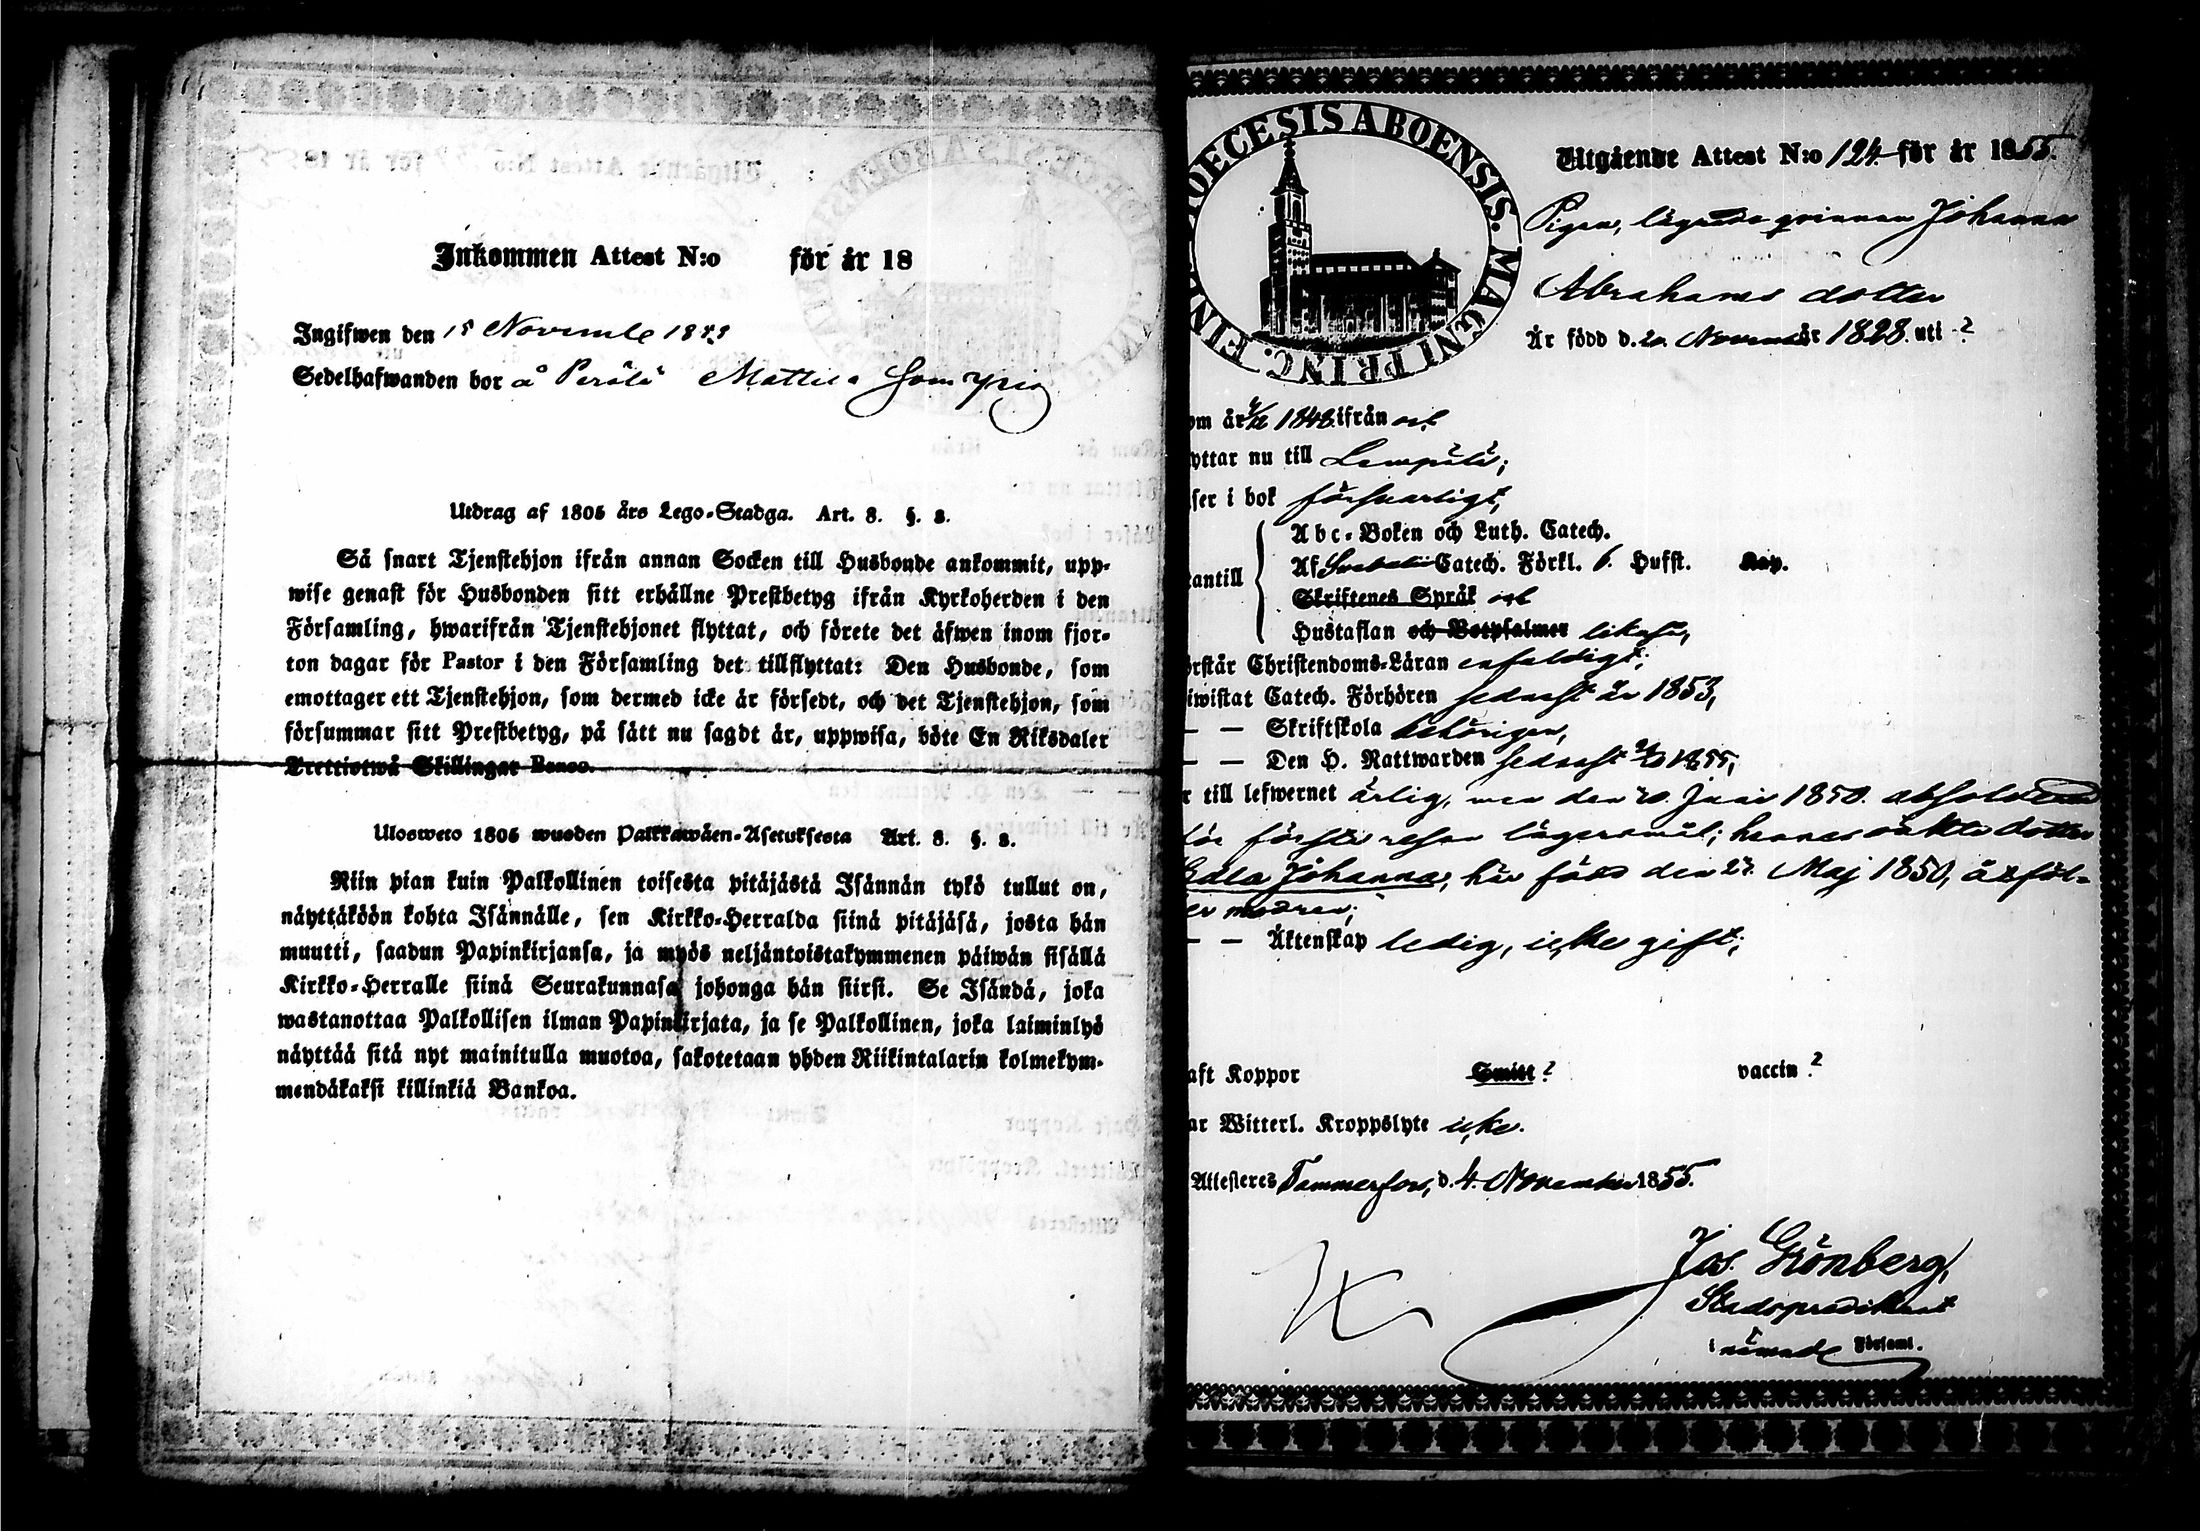 Inkommen Attest N:o för år 18
Ingifwen den 15 Novemb 18
Sedelhafwanden bor å Perälä Mattila
Utdrag af 1805 års Lego-Stadga. Art. 8. §. 3.
Så snart Tjenstehjon ifrån annan Socken till Husbonde ankommit, upp-
wise genast för Husbonden sitt erhållne Prestbetyg ifrån Kyrkoherden i den
Församling, hwarifrån Tjenstehjonet flyttat, och förete det äfwen inom fjor-
ton dagar för Pastor i den Församling det tillflyttat: Den Husbonde, som
emottager ett Tjenstehjon, som dermed icke är försedt, och det Tjenstehjon, som
försummar sitt Prestbetyg, på sätt nu sagdt är, uppwisa, böte En Riksdaler
Trettiotwå Skillingar Banco.
Ulosweto 1805 wuoden Palkkawäen-Asetuksesta Art. 8. §. 3.
Niin pian kuin Palkollinen toisesta pitäjästä Isännän tykö tullut on,
näyttäköön kohta Isännälle, sen Kirkko-Herralda siinä pitäjäsä, josta hän
muutti, saadun Papinkirjansa, ja myös neljäntoistakymmenen päiwän sisällä
Kirkko-Herralle siinä Seurakunnasa johonga hän siirsi. Se Isändä, joka
wastanottaa Palkollisen ilman Papinkirjata, ja se Palkollinen, joka laiminlyö
näyttää sitä nyt mainitulla muotoa, sakotetaan yhden Riikintalarin kolmekym-
mendäkaksi killinkiä Bankoa.
OECESIS ABOENSIS. MAGNI PRINC. FINL
Utgående Attest N:o 124 för år 1855.
Pigan, lägrade qvinnan Johanna
Abrahams dotter
Är född d. 20. November år 1828. uti ?
om år 1848 ifrån
yttar nu till Lempälä;
ser i bok försvarligt,
Abc-Boken och Luth. Catech.
antill Af Svebelii Catech. Förkl. 6. Hufst. Kap.
Skriftenes Språk och
Hustaflan och Botpsalmer likaså,
örstår Christendoms-Läran enfaldigt;
iwistat Catech. Förhören sednast år 1853,
— — Skriftskola behörigen,
— — Den H. Nattwarden sednast 1855,
r till lefwernet ärlig, men den 20. Juni 1850. absolverad
för första resan lägersmål; hennes oäkta dotter
Johanna, här född den 27. Maj 1850, åtföl-
er modren;
— — Äktenskap ledig, icke gift;
aft Koppor Smitt ? vaccin ?
ar Witterl. Kroppslyte icke.
Attesteres Tammerfors, d. 4. November 1855.
Jos. Grönberg,
Stadspredikant
i nämnde Församl.